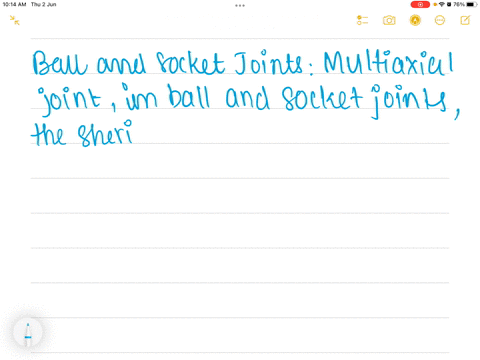 10:14 AM Thu 2 Jun
76%
Ball and Socket Joints: Multiaxial
joint, in ball and socket joints,
the sheri